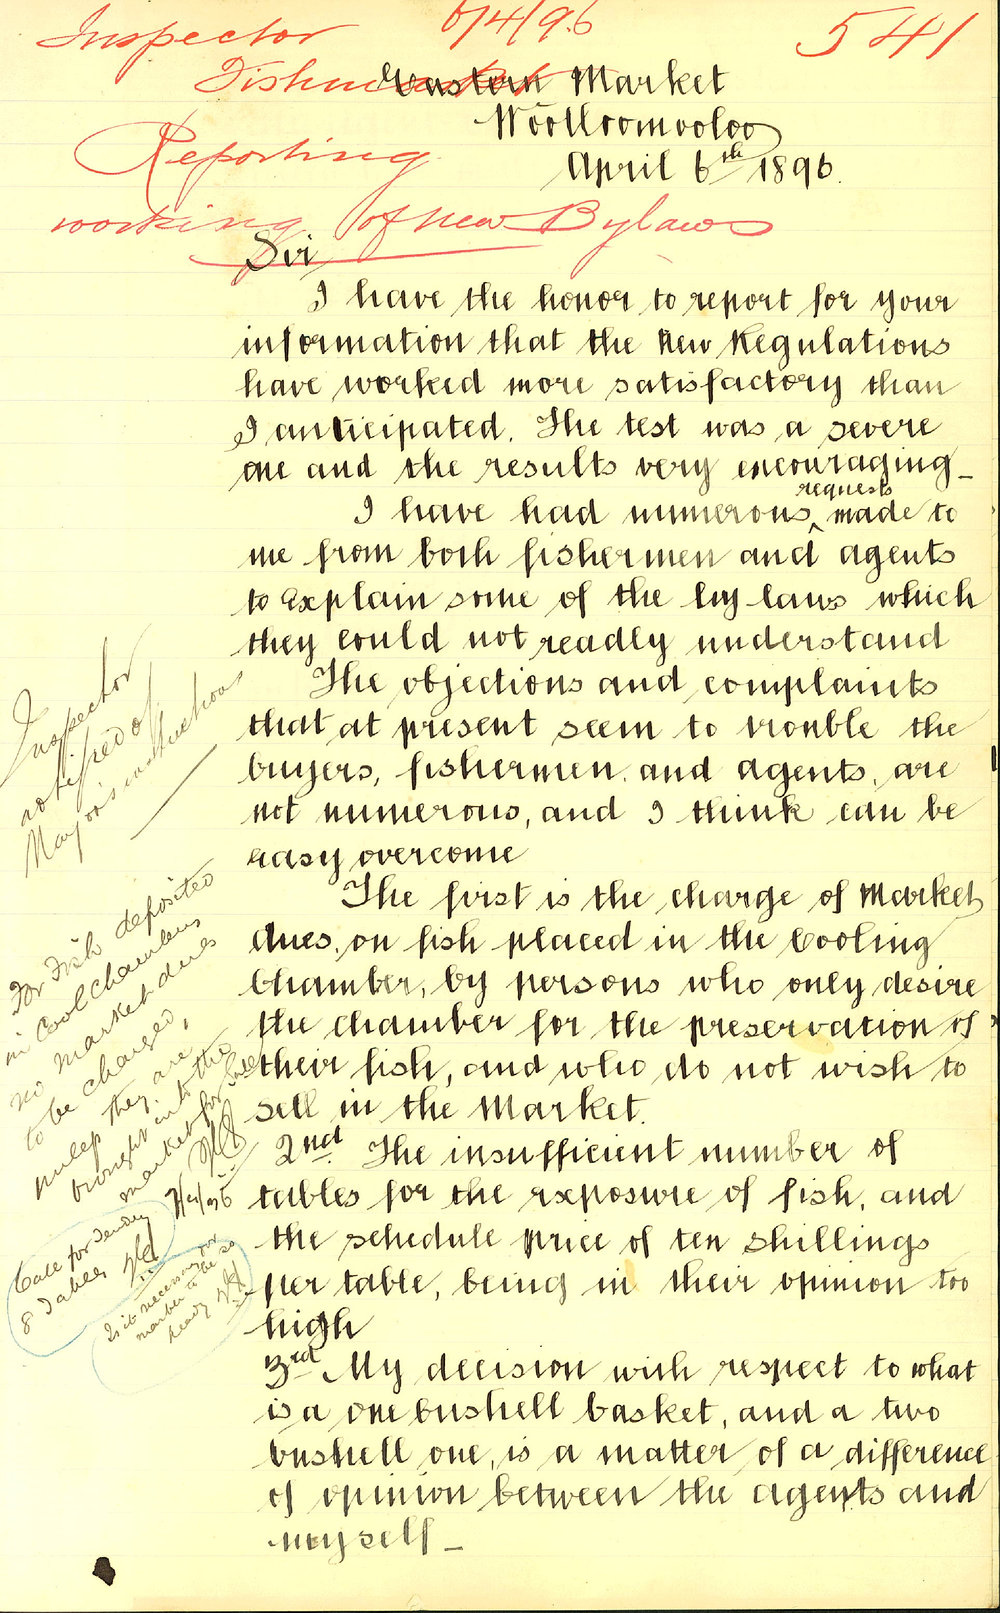 Inspector 6/4/96 541
Fishmarket
Eastern Market
Woolloomooloo
Reporting
April 6th 1896.
working of new Bylaws
Sir
I have the honor to report for your
information that the New Regulations
have worked more satisfactory than
I anticipated. The test was a severe
one and the results very encouraging_
requests
I have had numerous ^ made to
me from both fishermen and agents
to Explain some of the by-laws which
they could not readly understand
The objections and complaints
that at present seem to trouble the
buyers, fishermen, and agents, are
not numerous, and I think can be
easy overcome
The first is the charge of Market
dues, on fish placed in the Cooling
Chamber, by persons who only desire
the chamber for the preservation of
their fish, and who do not wish to
sell in the Market.
2nd The insufficient number of
tables for the exposure of fish, and
the schedule price of ten shillings
per table, being in their opinion too
high
3rd My decision with respect to what
is a one bushell basket, and a two
bushell one, is a matter of a difference
of opinion between the agents and
myself_
Inspector
notified of
Mayor's instructions
For Fish deposited
in Cool Chambers
no market dues
to be charged,
unless they are
brought into the
market for sale
7/4/96
Call for Tender
8 Tables
Is it necessary for
marble to be so
heavy